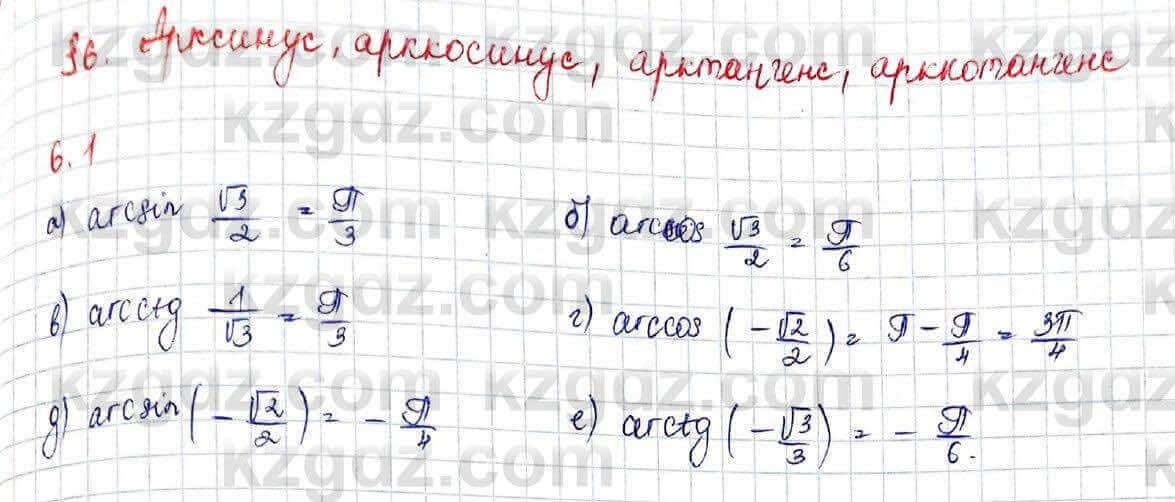 §6. Арксинус, арккосинус, арктангенс, арккотангенс
6.1
а) arcsin √3/2 = π/3 б) arccos √3/2 = π/6
в) arcctg 1/√3 = π/3 г) arccos (-√2/2) = π - π/4 = 3π/4
д) arcsin (-√2/2) = -π/4 е) arctg (-√3/3) = -π/6.
kzgdz.com